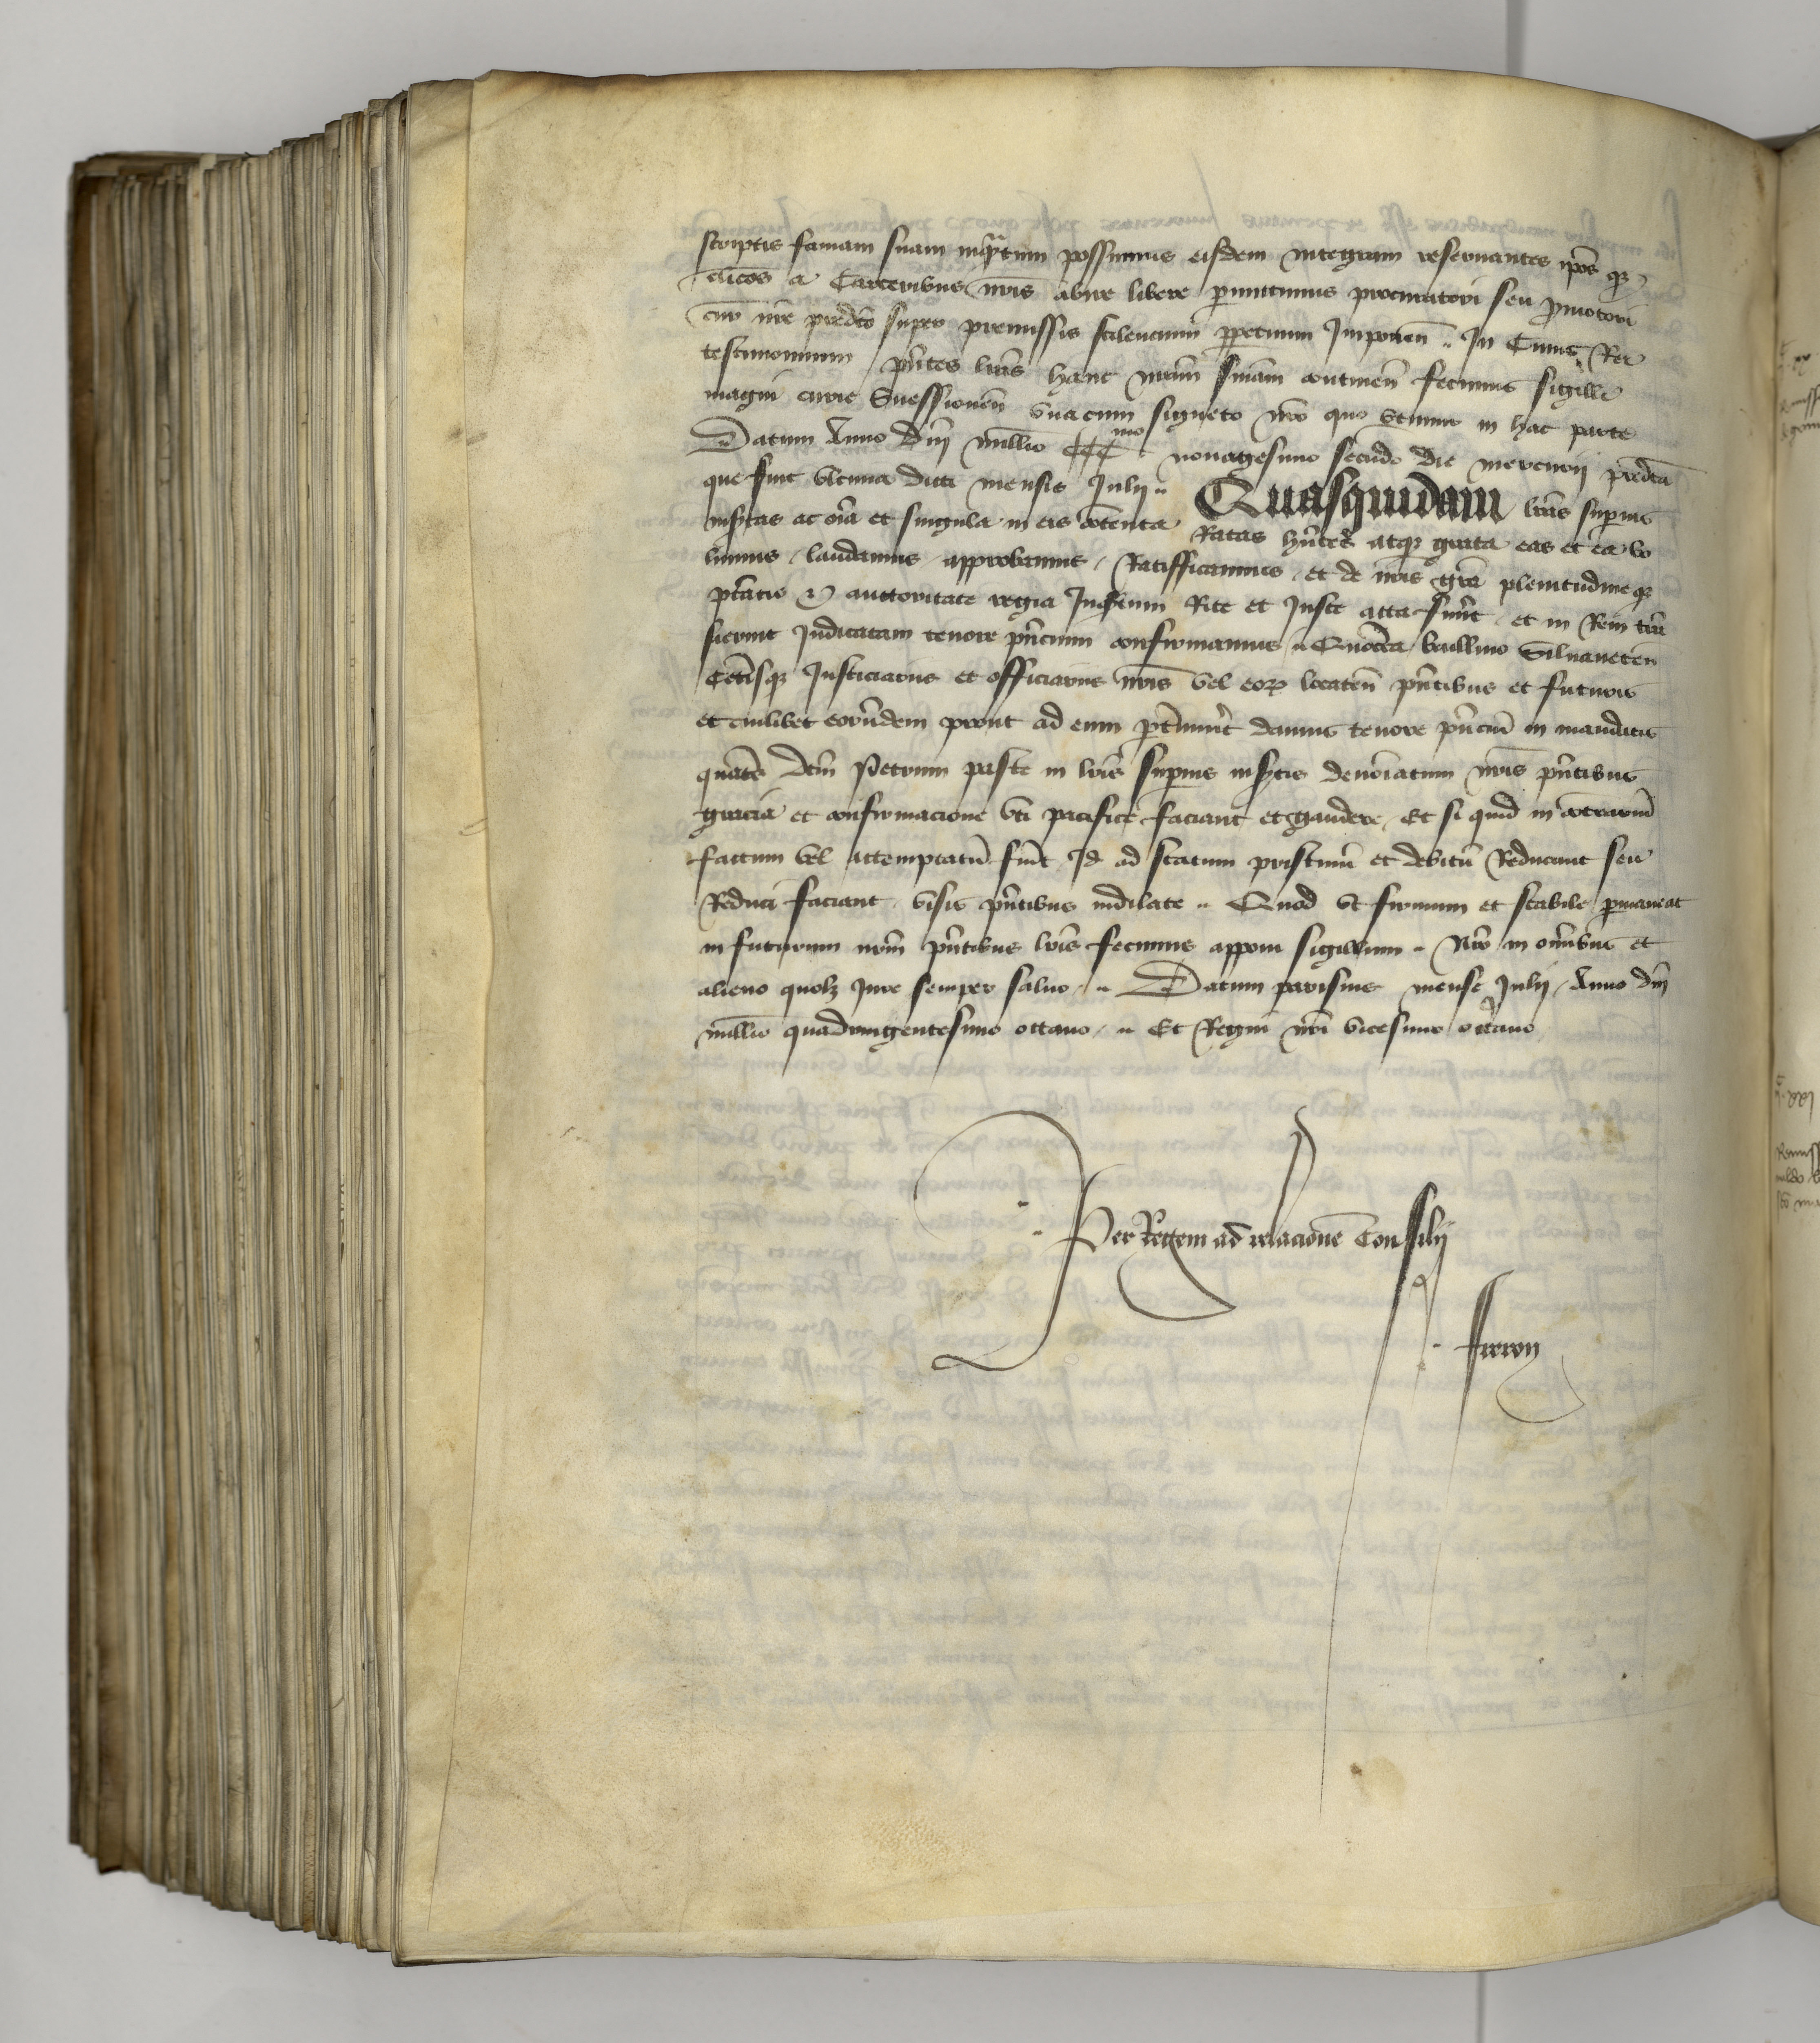 scriptis famam suam inqntum possumus eisdem integram reservantes ipos qz
clicos a Carceribus nris abire libere permittimus procuratori seu promotori
curie nre predce super premissis silencium perpetuum Imponen In Cuius Rei
testimonium pntes lras hanc nram sniam continen fecimus sigilli
magni curie Suessionen una cum signeto nro quo utimur in hac parte
Datum Anno Dni millio CCC mo nonagesimo secudo die mercurii predca
que fuit ultima dicti mensis Julii Quasquidam lras superius
insertas ac oia et singula in eis contenta Ratas hntes atqz grata eas et ea vo
lumus laudamus approbamus Ratifficamus et de nris gra plenitudineqz
ptatis et auctoritate regia Inqntum Rite et Juste acta sunt et in Rem tran
sierunt Judicatam tenore pncium confirmamus Quocirca baillivo Silvaneten
Ceterisqz Justiciariis et officiariis nris vel eorum locaten pntibus et futuris
et cuilibet eorundem prout ad eum ptinuit damus tenore pncium in mandatis
quaten dcm Petrum paste in lris superius insertis denoiatum nris pntibus
gracia et confirmacione uti pacifice faciant et gaudere Et si quid in contrarium
factum vel attemptatum fuit Id ad statum pristinu et debitu Reducant seu
Reduci faciant visis pntibus indilate Quod ut firmum et stabile permaneat
in futurum nrm pntibus lris fecimus apponi sigillum Nro in omnibus et
alieno quolz Jure semper salvo Datum parisius mense Julii Anno dni
millio quadringentesimo octavo Et Regni nri vicesimo octavo
Per Regem ad relacione Consilii
Ferron